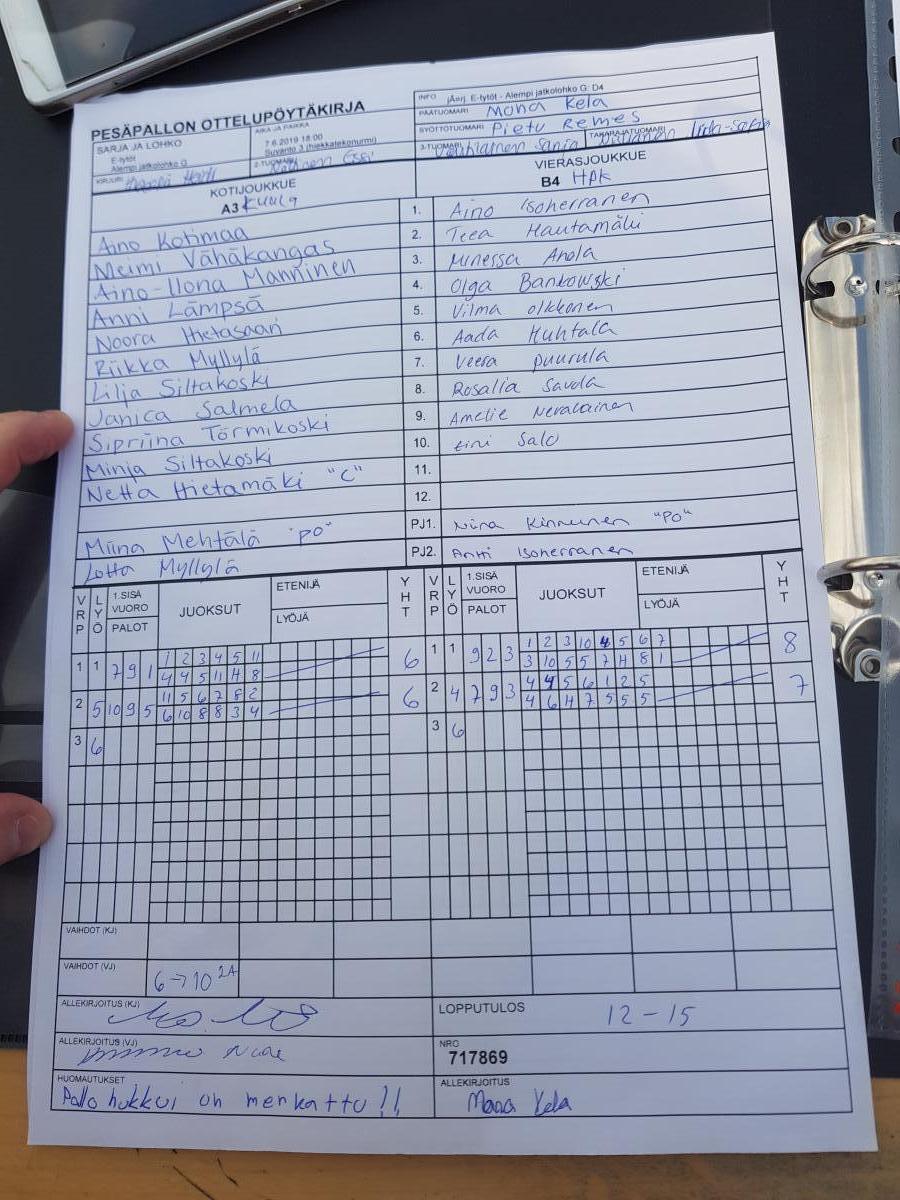 PESÄPALLON OTTELUPÖYTÄKIRJA
SARJA JA LOHKO
E-tytöt
Alempi jatkolohko G
AIKA JA PAIKKA
7.6.2019 18:00
Suvanto 3 (hiekkatekonurmi)
INFO jAnrj. E-tytöt - Alempi jatkolohko G: D4
PÄÄTUOMARI Mona Kela
SYÖTTÖTUOMARI Pietu Remes
2-TUOMARI
3-TUOMARI
TAKARAJATUOMARI
KIRJURI
KOTIJOUKKUE
A3 Kuula
VIERASJOUKKUE
B4 HPK
Aino Kotimaa 1. Aino Isoherranen
Meimi Vähäkangas 2. Teea Hautamäki
Aino-Ilona Manninen 3. Minessa Anola
Anni Lämpsä 4. Olga Bankowski
Noora Hietasaari 5. Vilma Olkkonen
Riikka Myllylä 6. Aada Huhtala
Lilja Siltakoski 7. Veera Puurula
Janica Salmela 8. Rosalia
Sipriina Törmikoski 9. Amelie Nevalainen
Minja Siltakoski 10. Eini Salo
Netta Hietamäki "C" 11.
12.
Miina Mehtälä "PO" PJ1. Niina Kinnunen "PO"
Lotta Myllylä PJ2. Antti Isoherranen
VRP LYÖ 1.SISÄ VUORO PALOT JUOKSUT ETENIJÄ LYÖJÄ YHT VRP LYÖ 1.SISÄ VUORO PALOT JUOKSUT ETENIJÄ LYÖJÄ YHT
1 1 7 9 1 1 2 3 4 5 11 6 1 1 9 2 3 1 2 3 10 4 5 6 7 8
4 4 5 11 4 8 3 10 5 5 7 4 8 1
2 5 10 9 5 11 5 6 7 8 2 6 2 4 7 9 3 4 4 5 6 1 2 5 7
6 10 8 8 3 4 4 6 4 7 5 5 5
3 6 3 6
VAIHDOT (KJ)
VAIHDOT (VJ) 6→10 2A
ALLEKIRJOITUS (KJ)
LOPPUTULOS 12-15
ALLEKIRJOITUS (VJ)
NRO
717869
HUOMAUTUKSET
Pallo hukkui on merkattu!!
ALLEKIRJOITUS
Mona Kela